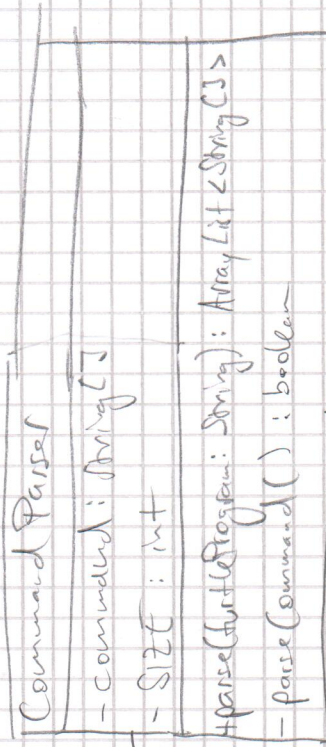 Command Parser
- command : String[]
- SIZE : int
+parse(turtleProgram: String) : ArrayList<String[]>
- parseCommand() : boolean